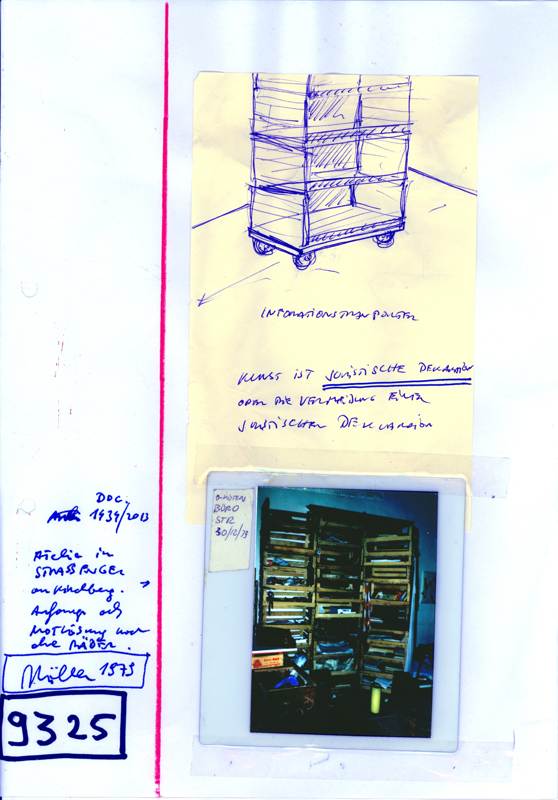 INFORATIONSTRANSPORTER
KUNST IST JURISTISCHE DEKLARATION
ODER DIE VERMEIDUNG EINER
JURISTISCHEN DEKLARATION
BÜRO
STR
30/12/73
DOC.
1434/2013
Atelier in
STRASSENGEL
am Kirchberg.
Anfangs als
NOTLÖSUNG noch
ohne RÄDER.
Möller 1973
9325